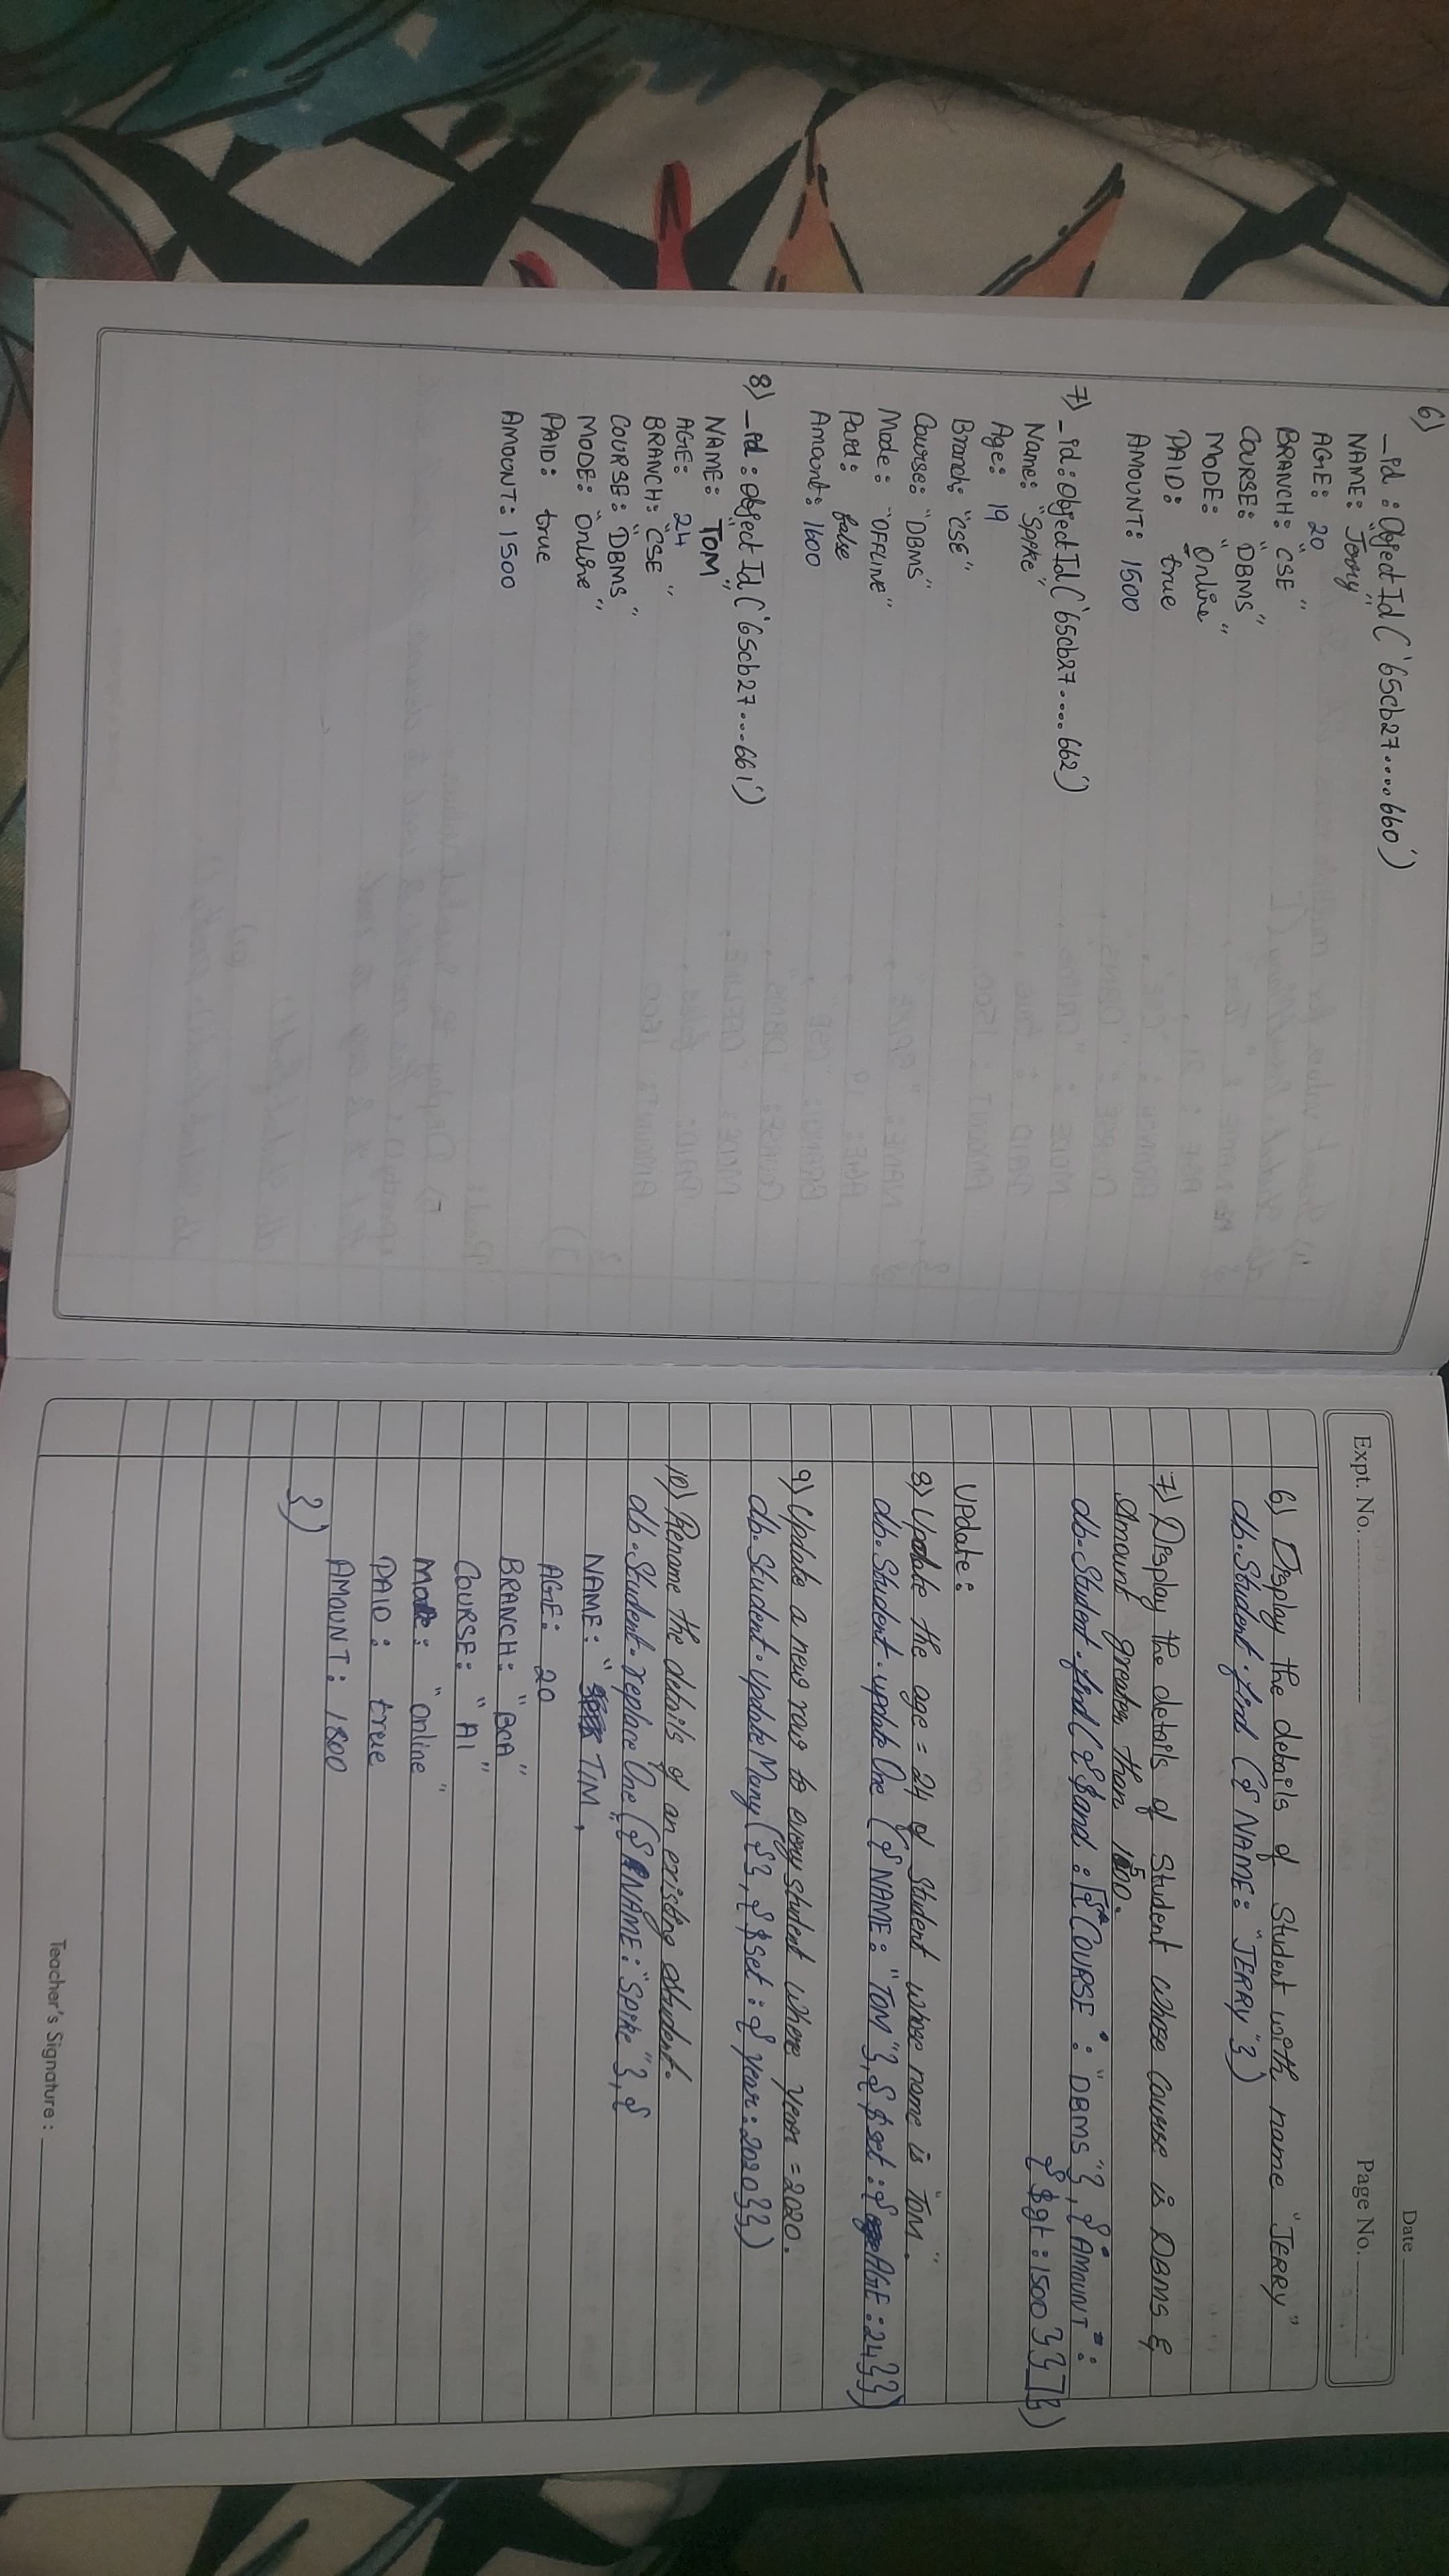 6)
_id : Object Id ( '65cb27....660' )
NAME: "Jerry"
AGE: 20
BRANCH: "CSE"
COURSE: "DBMS"
MODE: "Online"
PAID: true
AMOUNT: 1500
7) _id : Object Id ( '65cb27....662' )
Name: "Spike"
Age: 19
Branch: "CSE"
Course: "DBMS"
Mode: "OFFLINE"
Paid: false
Amount: 1600
8) _id : Object Id ( '65cb27...661' )
NAME: "TOM"
AGE: 24
BRANCH: "CSE"
COURSE: "DBMS"
MODE: "Online"
PAID: true
AMOUNT: 1500
Date
Expt. No. Page No.
6) Display the details of Student with name "JERRY"
db.Student.find ({ NAME: "JERRY"})
7) Display the details of Student whose Course is DBMS &
Amount greater than 1500.
db.Student.find({$and : [{"COURSE" : "DBMS"}, {"AMOUNT" :
{$gt : 1500}}]})
Update:
8) Update the age = 24 of Student whose name is "TOM".
db.Student.update One ({ NAME: "TOM"}, { $set : { AGE : 24}})
9) Update a new row to every student where year = 2020.
db.Student.Update Many ({}, {$set : { year : 2020}})
10) Rename the details of an existing student.
db.Student.replace One ({ NAME: "Spike"}, {
NAME: "TIM",
AGE: 20
BRANCH: "BCA"
COURSE: "AI"
Mode: "Online"
PAID: true
AMOUNT: 1800
})
Teacher's Signature :